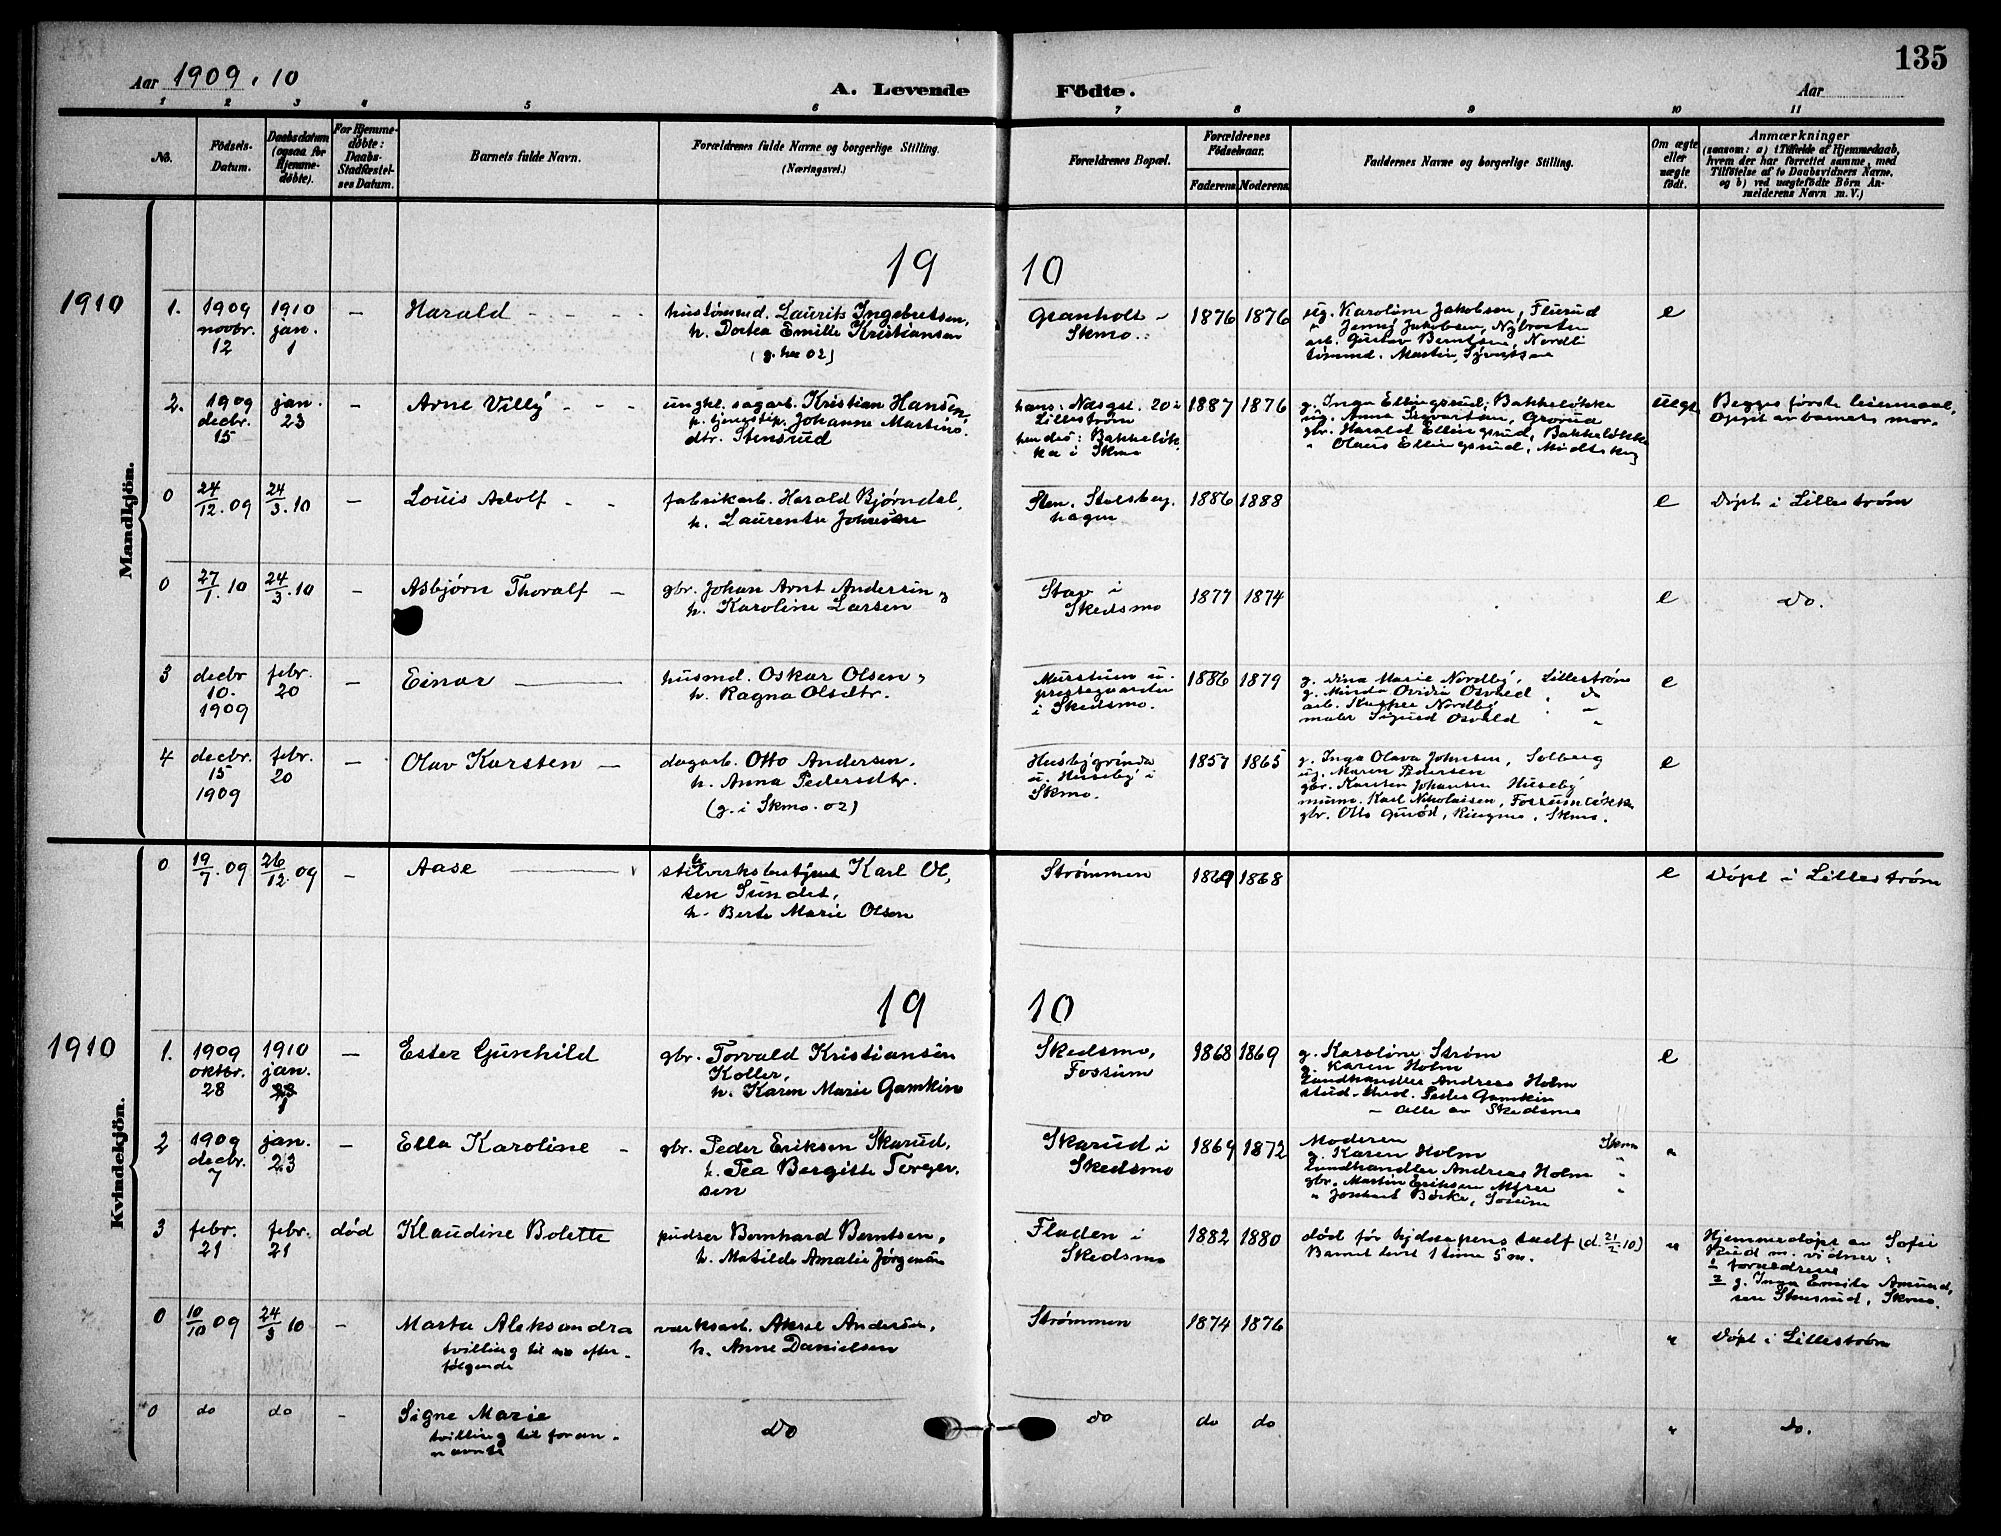 135
Aar 1909. 10
A. Levende Födte.
Aar
1 2 3 4 5 6 7 8 9 10 11
No.
Födsels-Datum.
Daabsdatum (ogsaa for Hjemme-døbte).
For Hjemme-døbte: Daabs-Stadfæstel-ses Datum.
Barnets fulde Navn.
Forældrenes fulde Navne og borgerlige Stilling. (Næringsvei.)
Forældrenes Bopæl.
Forældrenes Födselsaar.
Faderens Moderens
Faddernes Navne og borgerlige Stilling.
Om ægte eller uægte født.
Anmærkninger
(saasom: a) i Tilfælde af Hjemmedaab, hvem der har forrettet samme, med Tilföielse af to Daabsvidners Navne, og b) ved uægtefödte Börn An-melderens Navn m. V.)
Mandkjön.
19 10
1910
1. 1909 novbr. 12
1910 jan. 1
–
Harald
hustømmd. Laurits Ingebretsen,
h. Dortea Emilie Kristiansen
(g. her 02)
Granholt
Skmo.
1876 1876
ug. Karoline Jakobsen, Flurud
" Jenny Jakobsen, Nybrotten
arb. Gustav Berntsen, Nordli
tømmd. Martin Syvertsen
e
2. 1909 decbr. 15
jan. 23
–
Arne Villy
ungkl. sagarb. Kristian Hansen
p. tjenestep. Johanne Martins-
dtr. Stensrud
hans: Næsgt. 20 i
Lillestrøm
hendes: Bakkeløk-
ka i Skmo
1887 1876
g. Inga Ellingsrud, Bakkeløkka
ug. Anna Sigvartsen, Grorud
gbr. Harald Ellingsrud, Bakkeløkka
" Olaus Ellingsrud, Midtskog
uegt.
Begges første leiermaal.
Opgit av barnets mor.
0 24/12.09
24/3.10
–
Louis Adolf
fabrikarb. Harald Bjørndal,
h. Laurentse Johnsen
Sten, Stalsberg-
hagen
1886 1888
e
Døpt i Lillestrøm
0 27/1.10
24/3.10
–
Asbjørn Thoralf
gbr. Johan Arnt Andersen,
h. Karoline Larsen
Stav i
Skedsmo
1877 1874
e
Do.
3 decbr 10. 1909
febr. 20
–
Einar
husmd. Oskar Olsen,
h. Ragna Olsdtr.
Murstuen u.
prestegaarden
i Skedsmo.
1886 1879
g. Dina Marie Nordby, Lillestrøm
g. Minda Ovidia Osvald do
arb. Kasper Nordby "
maler Sigurd Osvald "
e
4 decbr. 15 1909
febr. 20
–
Olav Karsten
dagarb. Otto Andersen,
h. Anna Pedersdtr.
(g. i Skmo. 02)
Husbygrinda
u. Huseby i
Skmo.
1857 1865
g. Inga Olava Johnsen, Solberg
ug. Maren Pedersen
gbr. Karsten Johansen Huseby
murm. Karl Nikolaisen, Fossumløkk.
gbr. Otto Gurød, Ringmo, Skmo.
e
Kvindekjön.
0 19/7.09
26/12.09
–
Aase
stålverksbestyrer Karl Ol-
sen Sundet,
h. Berte Marie Olsen
Strømmen
1869 1868
e
Døpt i Lillestrøm
19 10
1910
1. 1909 oktbr. 28
1910 jan. 1
–
Ester Gunhild
gbr. Torvald Kristiansen
Koller,
h. Karen Marie Gamkin
Skedsmo,
Fossum
1868 1869
g. Karoline Strøm
g. Karen Holm
Landhandler Andreas Holm
stud. med. Peder Gamkin
– alle av Skedsmo
e
2 1909 decbr. 7
jan. 23
–
Ella Karoline
gbr. Peder Eriksen Skarud,
h. Tea Bergitte Torger-
sen
Skarud i
Skedsmo
1869 1872
Moderen Skmo
g. Karen Holm "
Landhandler Andreas Holm "
gbr. Martin Eriksen Myrer "
" Joshart Børke, Sørum
"
3 febr. 21
febr. 21
død
Klaudine Bolette
pudser Bernhard Berntsen,
h. Matilde Amalie Jørgensen
Fladen i
Skedsmo
1882 1880
død før hjdaapens stadf (d. 21/2 10)
Barnet levet 1 time 5 m.
"
Hjemmedøpt av Sofie
Skud m. vidner:
1 forældrene
2 g. Inga Emilie Amund-
sen Stensrud, Skmo.
0 10/10 09
24/3 10
–
Marta Aleksandra
tvilling til efter-
følgende
verksarb. Aksel Andersen,
h. Anne Danielsen
Strømmen
1874 1876
"
Døpt i Lillestrøm
0 do
do
–
Signe Marie
tvilling til foran-
nævnte
Do
do
do do
"
Do.